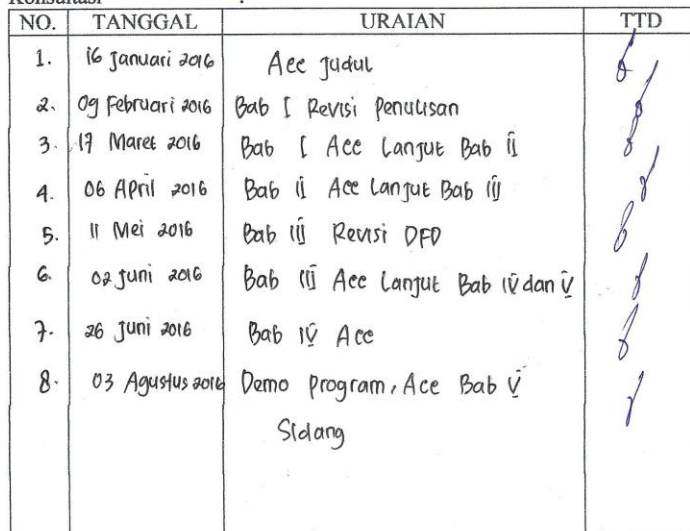 Konsultasi :
NO. TANGGAL URAIAN TTD
1. 16 Januari 2016 Acc Judul
2. 09 Februari 2016 Bab I Revisi Penulisan
3. 17 Maret 2016 Bab I Acc Lanjut Bab II
4. 06 April 2016 Bab II Acc Lanjut Bab III
5. 11 Mei 2016 Bab III Revisi DFD
6. 02 Juni 2016 Bab III Acc Lanjut Bab IV dan V
7. 26 Juni 2016 Bab IV Acc
8. 03 Agustus 2016 Demo Program, Acc Bab V
Sidang